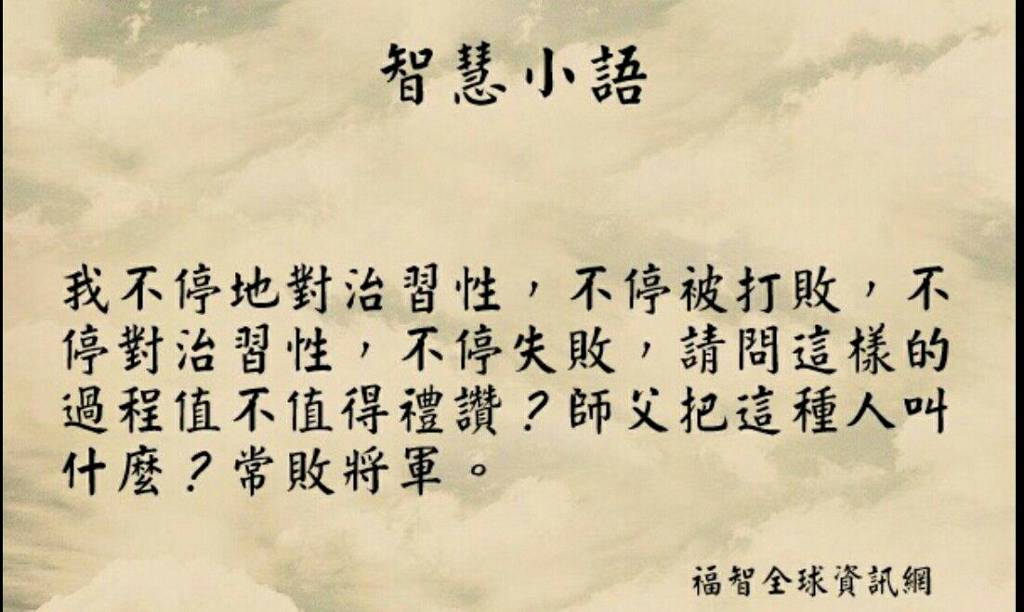 智慧小語
我不停地對治習性，不停被打敗，不
停對治習性，不停失敗，請問這樣的
過程值不值得禮讚？師父把這種人叫
什麼？常敗將軍。
福智全球資訊網